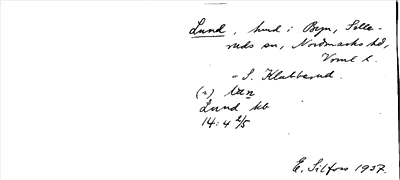 Lund, hmd i Byn, Sille-
ruds sn, Nordmarks hd,
Vrml l.
= S. Klubberud.
(~) lun
Lund kb
14:4 2/5
E. Silfors 1937.